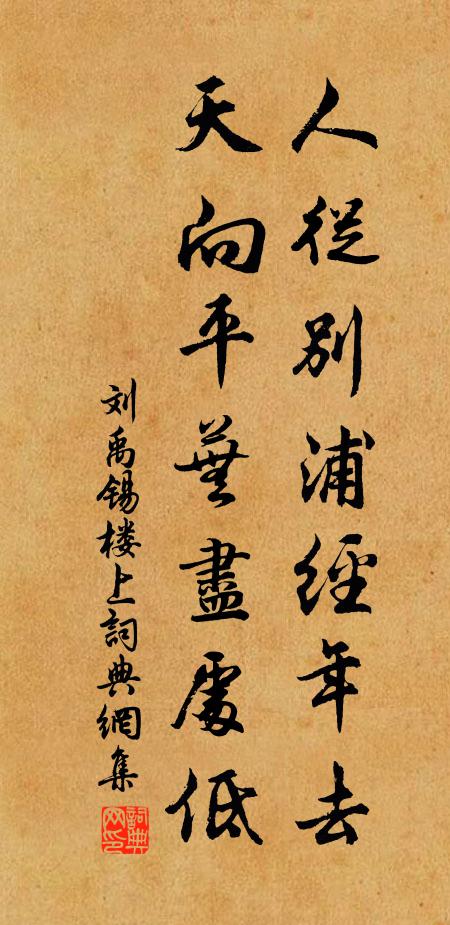 人從別浦經年去
天向平蕪盡處低
刘禹锡楼上詞典網集
詞典网印